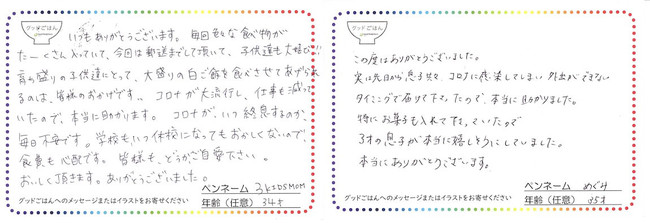 グッドごはん
いつもありがとうございます。毎回色々な食べ物が
たーくさん入っていて、今回は郵送までして頂いて、子供達も大喜び!!
育ち盛りの子供達にとって、大盛りの白ご飯を食べさせてあげられ
るのは、皆様のおかげです。コロナが大流行し、仕事も減って
いたので、本当に助かります。コロナが、いつ終息するのか、
毎日不安です。学校もいつ休校になってもおかしくないので、
食費も心配です。皆様も、どうかご自愛下さい。
おいしく頂きます。ありがとうございました。
ペンネーム 3KIDSMOM
グッドごはんへのメッセージまたはイラストをお寄せください 年齢(任意) 34才
グッドごはん
この度はありがとうございました。
実は先日から息子共々、コロナに感染してしまい外出ができない
タイミングで届けて下さったので、本当に助かりました。
特にお菓子も入れて下さっていたので
3才の息子が本当に嬉しそうにしていました。
本当にありがとうございます。
ペンネーム めぐみ
グッドごはんへのメッセージまたはイラストをお寄せください 年齢(任意) 35才